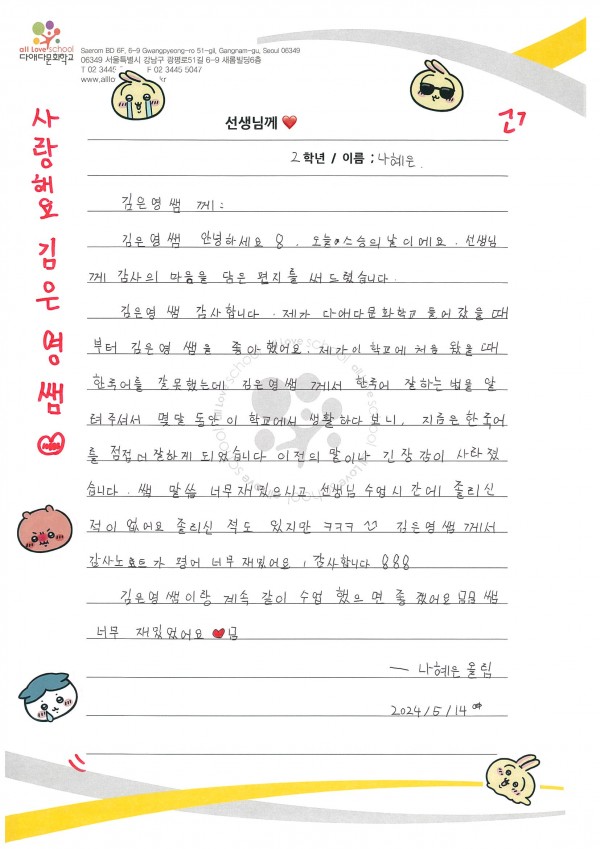 all Love school
다애다문화학교
Saerom BD 6F, 6-9 Gwangpyeong-ro 51-gil, Gangnam-gu, Seoul 06349
06349 서울특별시 강남구 광평로51길 6-9 새롬빌딩6층
T 02 3445 F 02 3445 5047
www.allo
사랑해요 김은영 쌤
선생님께 ❤
2 학년 / 이름 ; 나혜은.
김은영 쌤 께:
김은영 쌤 안녕하세요 8. 오늘이 스승의 날이에요. 선생님
께 감사의 마음을 담은 편지를 써 드렸습니다.
김은영 쌤 감사합니다. 제가 다애다문화학교 들어 갔을 때
부터 김은영 쌤을 좋아했어요. 제가 이 학교에 처음 왔을 때
한국어를 잘못했는데 김은영쌤 께서 한국어 잘하는 법을 알
려주셔서 몇달 동안 이 학교에서 생활 하다 보니, 지금은 한국어
를 점점 더 잘하게 되었습니다 이전의 말이나 긴장감이 사라졌
습니다. 쌤 말씀 너무 재밌으시고 선생님 수업시간에 졸리신
적이 없어요 졸리신 적도 있지만 ㅋㅋㅋㅋ 김은영 쌤께서
감사노트가 평어 너무 재밌어요, 감사합니다 888
김은영쌤이랑 계속 같이 수업 했으면 좋겠어요 쌤
너무 재밌었어요 ❤
— 나혜은 올림
2024/5/14
all Love school all Love school all Love school